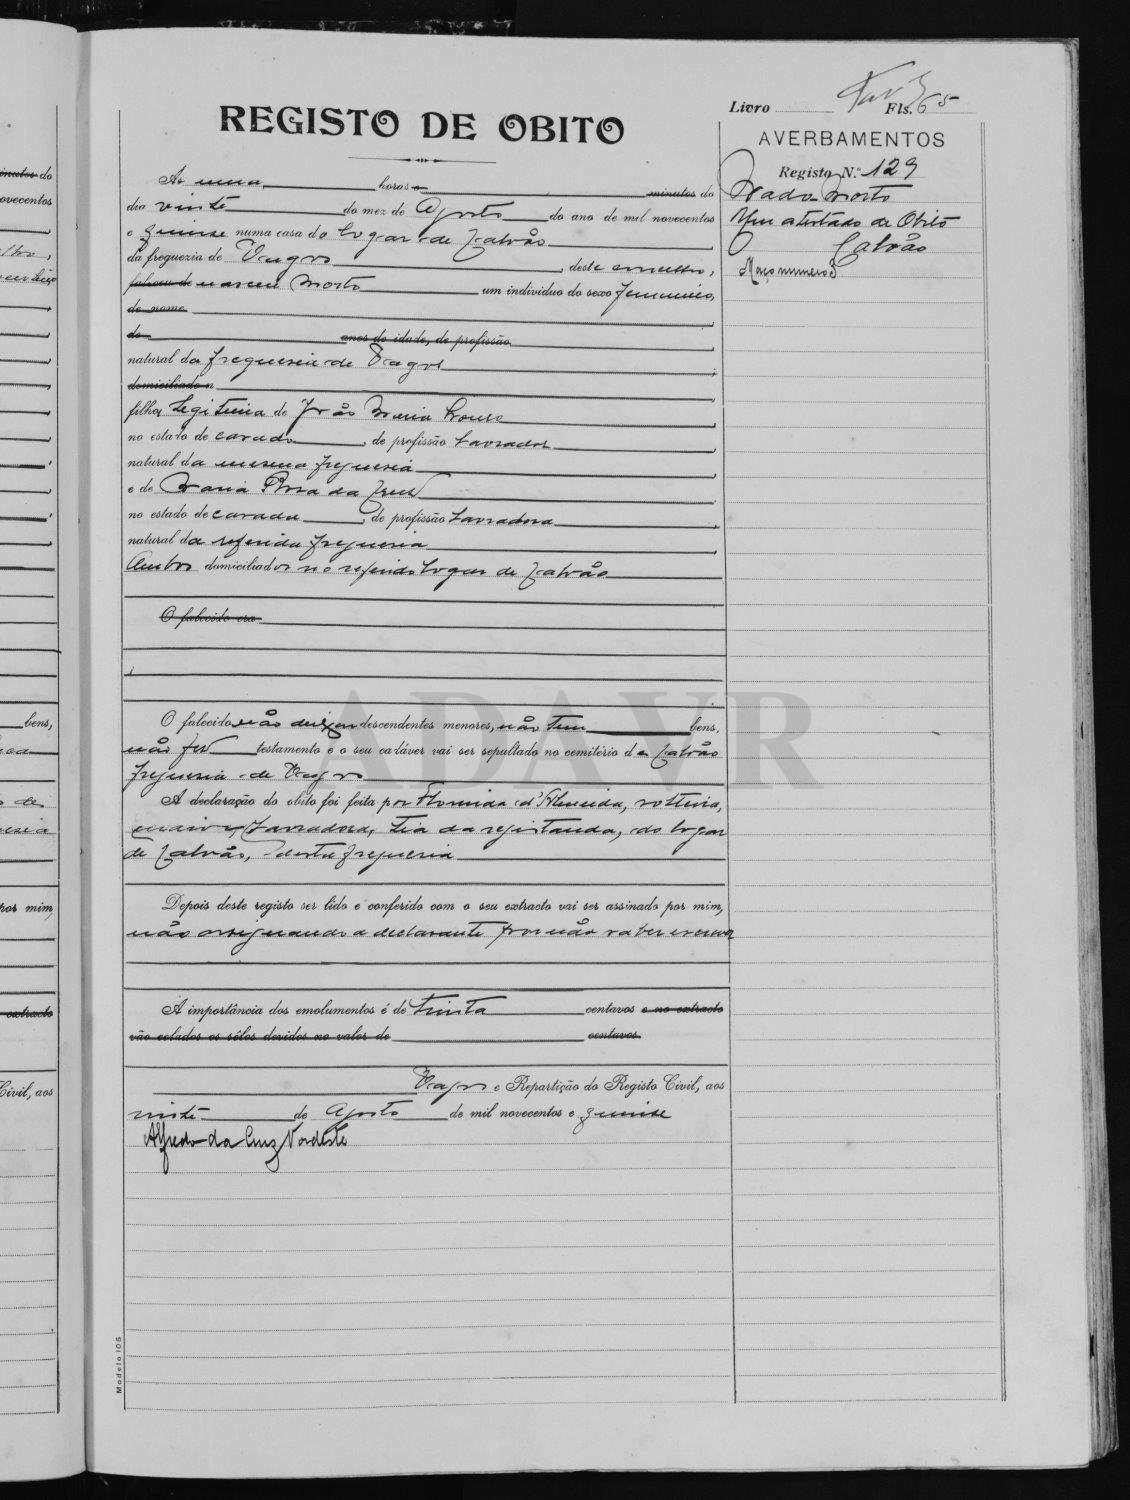 Livro Fls. 65
REGISTO DE OBITO
AVERBAMENTOS
Registo N.º 129
Nado Morto
Um atestado de Obito
Calvão
Maço numero 3
Á uma horas e minutos do
dia vinte do mez de Agosto do ano de mil novecentos
e quinse numa casa do logar de Calvão
da freguezia de Vagos, deste concelho,
faleceu de nasceu morto um individuo do sexo femenino,
de nome
de anos de idade, de profissão
natural da freguesia de Vagos
domiciliado n
filha legitima de João Maria
no estado de casado, de profissão Lavrador
natural da mesma freguesia
e de Maria Rosa da Cruz
no estado de casada, de profissão Lavradora
natural da referida freguesia
Ambos domiciliados no referido logar de Calvão
O falecido era
O falecido não deixou descendentes menores, não tem bens,
não fez testamento e o seu cadáver vai ser sepultado no cemitério de Calvão
freguesia de Vagos
A declaração do obito foi feita por d'Almeida, solteira,
maior, Lavradora, tia da registanda, do logar
de Calvão, desta freguesia
Depois deste registo ser lido e conferido com o seu extracto vai ser assinado por mim,
não assignando a declarante por não saber escrever
A importância dos emolumentos é de trinta centavos e no extracto
vão colados os sêlos devidos no valor de centavos.
Vagos e Repartição do Registo Civil, aos
vinte de Agosto de mil novecentos e quinse
Alfredo da Cruz Nordeste
Modelo 105
ADAVR